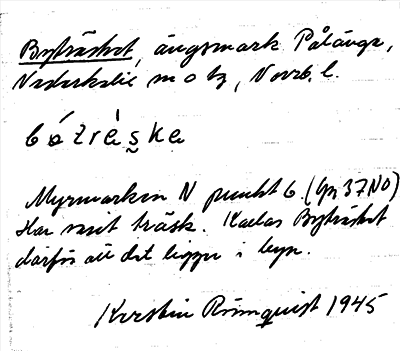 Byträsket, ängsmark Pålänge,
Nederkalix sn o tg, Norrb. l.
bó̀ztrèṣke
Myrmarken N punkt 6 (Gp 37 NO)
Har varit träsk. Kallas Byträsket
därför att det ligger i byn.
Kerstin Rönnquist 1945